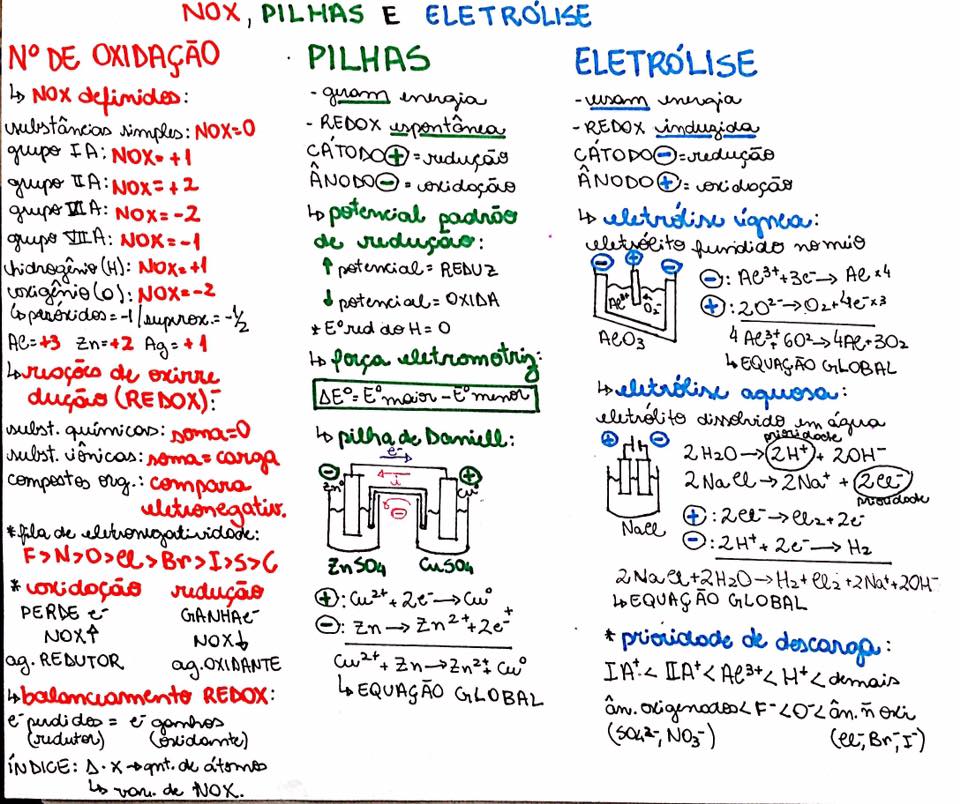 NOX, PILHAS E ELETRÓLISE
Nº DE OXIDAÇÃO
↳ NOX definidos:
substâncias simples: NOX=0
grupo IA: NOX=+1
grupo IIA: NOX=+2
grupo VIA: NOX=-2
grupo VIIA: NOX=-1
hidrogênio(H): NOX=+1
oxigênio(O): NOX=-2
↳peróxidos=-1/superox.=-½
Al=+3 Zn=+2 Ag=+1
↳reações de oxirre
dução (REDOX):
subst. químicas: soma=0
subst. iônicas: soma=carga
compostos org.: compara
eletronegativ.
*fila de eletronegatividade:
F>N>O>Cl>Br>I>S>C
* oxidação redução
PERDE e⁻ GANHA e⁻
NOX↑ NOX↓
ag. REDUTOR ag. OXIDANTE
↳balanceamento REDOX:
e⁻ perdidos = e⁻ ganhos
(redutor) (oxidante)
ÍNDICE: Δ·x→qnt. de átomos
↳ vari. de NOX.
PILHAS
- geram energia
- REDOX espontânea
CÁTODO⊕=redução
ÂNODO⊖=oxidação
↳potencial padrão
de redução:
↑potencial=REDUZ
↓potencial=OXIDA
*E°red do H=0
↳força eletromotriz:
ΔE°=E°maior-E°menor
↳pilha de Daniell:
e⁻
⊖ i ⊕
Zn° ⊖ Cu°
ZnSO4 CuSO4
⊕: Cu²⁺+2e⁻→Cu°
⊖: Zn→Zn²⁺+2e⁻
Cu²⁺+Zn→Zn²⁺+Cu°
↳EQUAÇÃO GLOBAL
ELETRÓLISE
- usam energia
- REDOX induzida
CÁTODO⊖=redução
ÂNODO⊕=oxidação
↳eletrólise ígnea:
eletrólito fundido no meio
⊖ ⊕ ⊖
Al³⁺ O²⁻
AlO3
⊖: Al³⁺+3e⁻→Al x4
⊕: 2O²⁻→O2+4e⁻ x3
4Al³⁺+6O²⁻→4Al+3O2
↳EQUAÇÃO GLOBAL
↳eletrólise aquosa:
eletrólito dissolvido em água
⊕ ⊖
NaCl
prioridade
2H2O→2H⁺+2OH⁻
2NaCl→2Na⁺+2Cl⁻
prioridade
⊕: 2Cl⁻→Cl2+2e⁻
⊖: 2H⁺+2e⁻→H2
2NaCl+2H2O→H2+Cl2+2Na⁺+2OH⁻
↳EQUAÇÃO GLOBAL
*prioridade de descarga:
IA⁺<IIA⁺<Al³⁺<H⁺<demais
ân. oxigenados<F⁻<O⁻<ân. ñ oxi
(SO4²⁻, NO3⁻) (Cl⁻, Br⁻, I⁻)